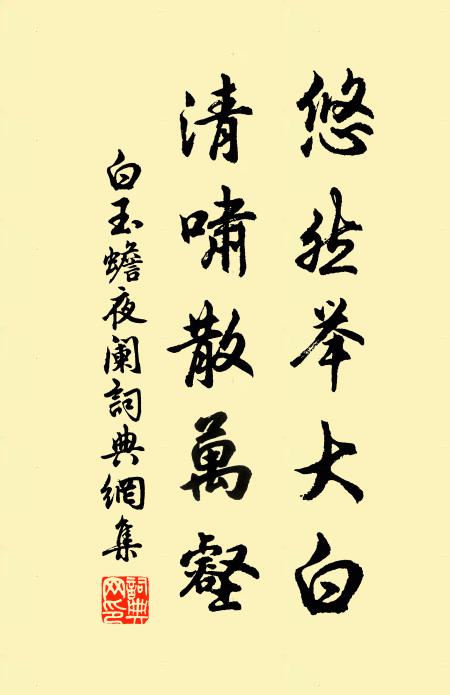 悠然举大白
清嘯散萬壑
白玉蟾夜阑詞典網集
詞典网印